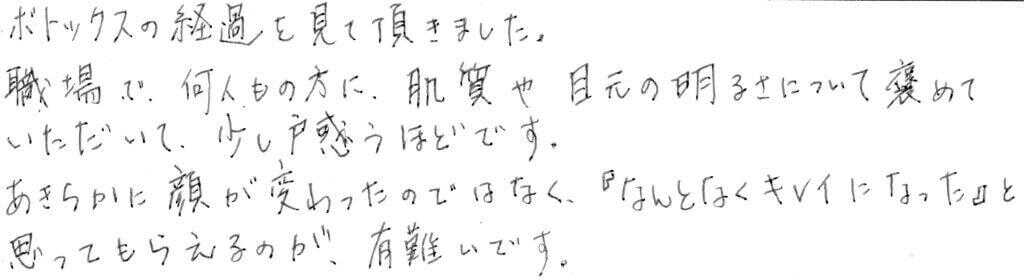 ボトックスの経過を見て頂きました。
職場で、何人もの方に、肌質や目元の明るさについて褒めて
いただいて、少し戸惑うほどです。
あきらかに顔が変わったのではなく、『なんとなくキレイになった』と
思ってもらえるのが、有難いです。